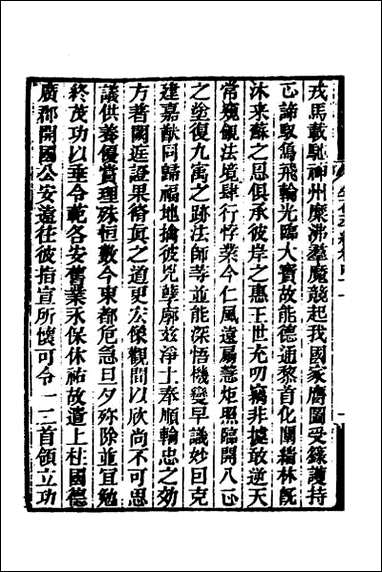 戎馬載馳神州糜沸羣魔競起我國家膺圖受籙護持
正諦馭象飛輪光臨大寶故能德通黎首化闡緇林旣
沐來蘇之恩俱承彼岸之惠王世充叨竊非據敢逆天
常窺覦法境肆行悖業今仁風遠扇慧炬照臨開八正
之塗復九寓之跡法師等並能深悟機變早識妙因克
建嘉猷同歸福地擒彼兇孽廓茲淨土奉順輸忠之効
方著闕廷證果脩眞之道更宏像觀聞以欣尚不可思
議供養優賞理殊恒數今東都危急旦夕殄除並宜勉
終茂功以垂令範各安舊業永保休祐故遣上柱國德
廣郡開國公安遠往彼指宣所懷可令一二首領立功